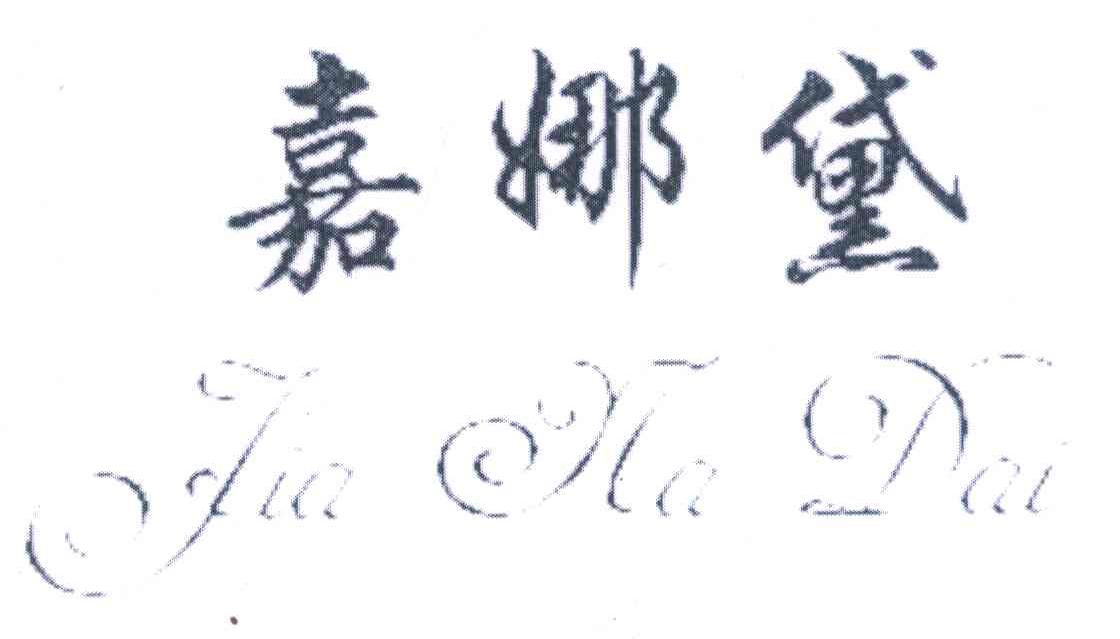 嘉娜黛
Jia Na Dai